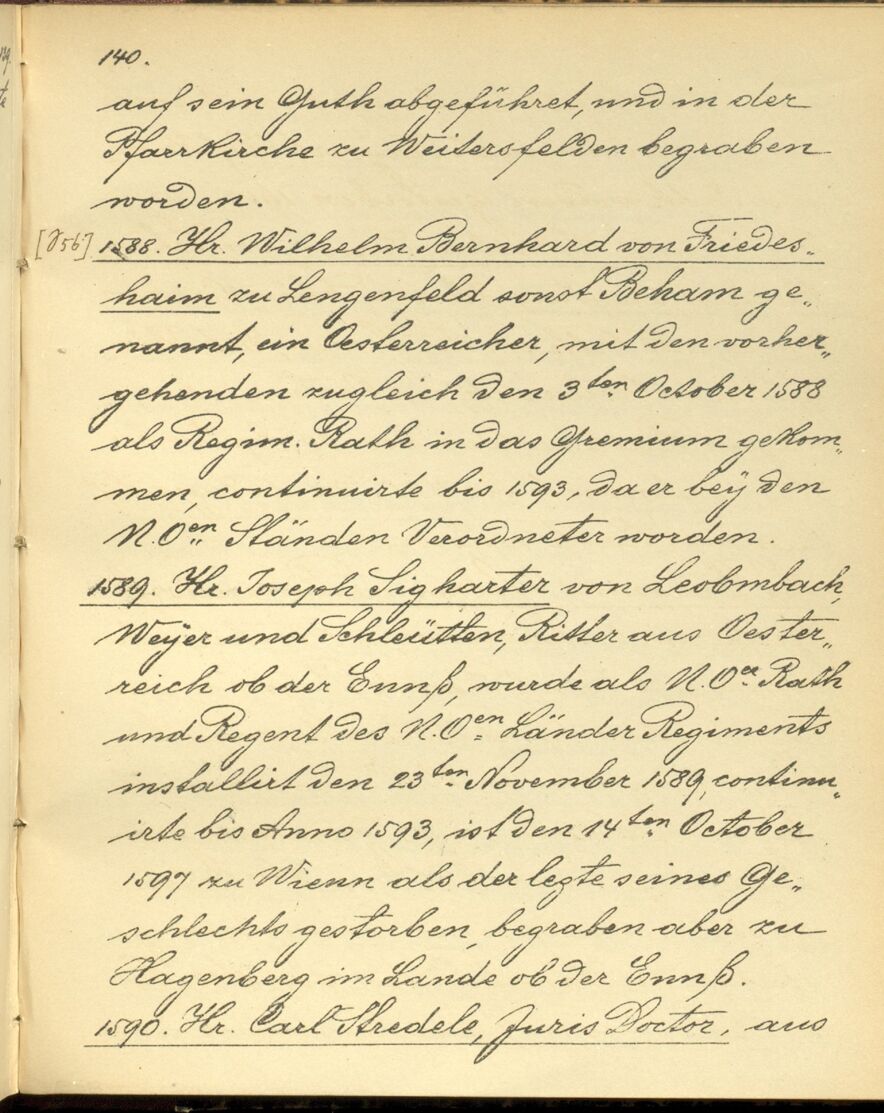 140.
auf sein Guth abgeführet, und in der
Pfarrkirche zu Weitersfelden begraben
worden.
1588. Hr. Wilhelm Bernhard von Friedes„
haim zu Lengenfeld sonst Beham ge„
nannt, ein Oesterreicher, mit den vorher„
gehenden zugleich den 3ten October 1588
als Regim. Rath in das Gremium gekom„
men, continuirte bis 1593, da er beÿ den
N. Oen Ständen Verordneter worden.
1589. Hr. Joseph Sigharter von Leobmbach,
Weÿer und Schleütten, Ritter aus Oester„
reich ob der Ennß, wurde als N. Oer Rath
und Regent des N. Oen Länder Regiments
installirt den 23ten November 1589, continu„
irte bis Anno 1593, ist den 14ten October
1597 zu Wienn als der lezte seines Ge„
schlechts gestorben, begraben aber zu
Hagenberg im Lande ob der Ennß.
1590. Hr. Carl Stredele, Juris Doctor, aus